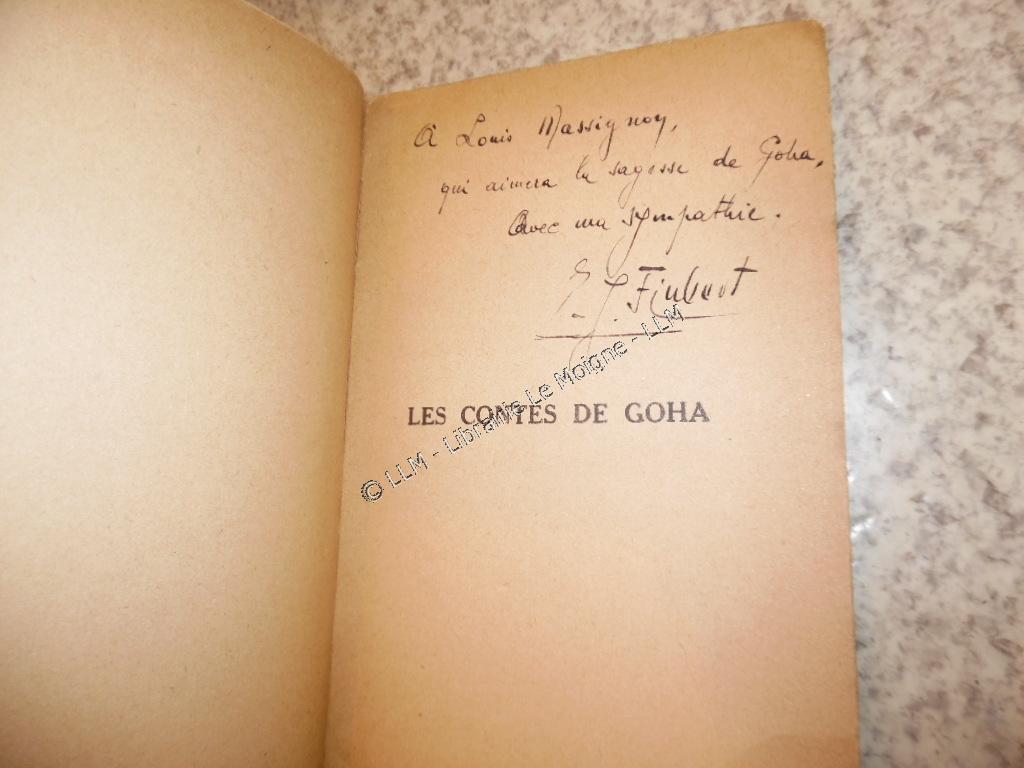 À Louis Massignon,
qui aimera la sagesse de Goha,
Avec ma sympathie.
E. J. Finbert
LES CONTES DE GOHA
© LLM - Librairie Le Moigne - LLM